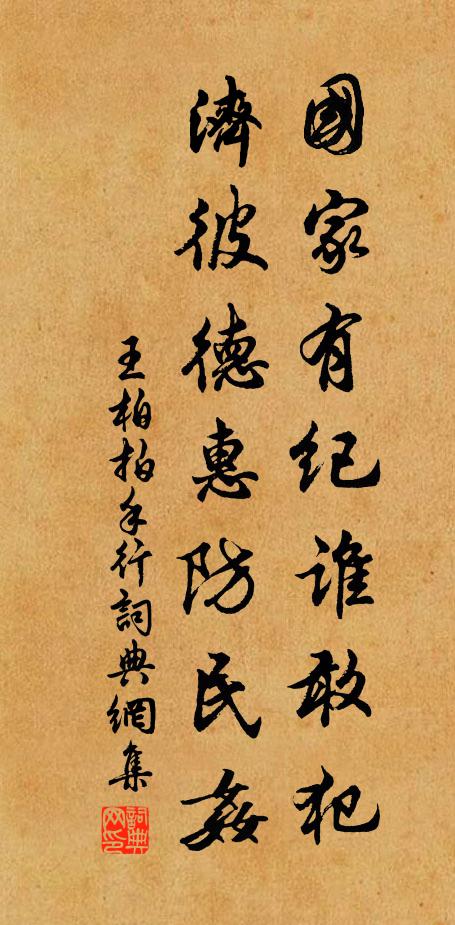 國家有紀誰敢犯
濟彼德惠防民姦
王柏拍手行詞典網集
詞典网印